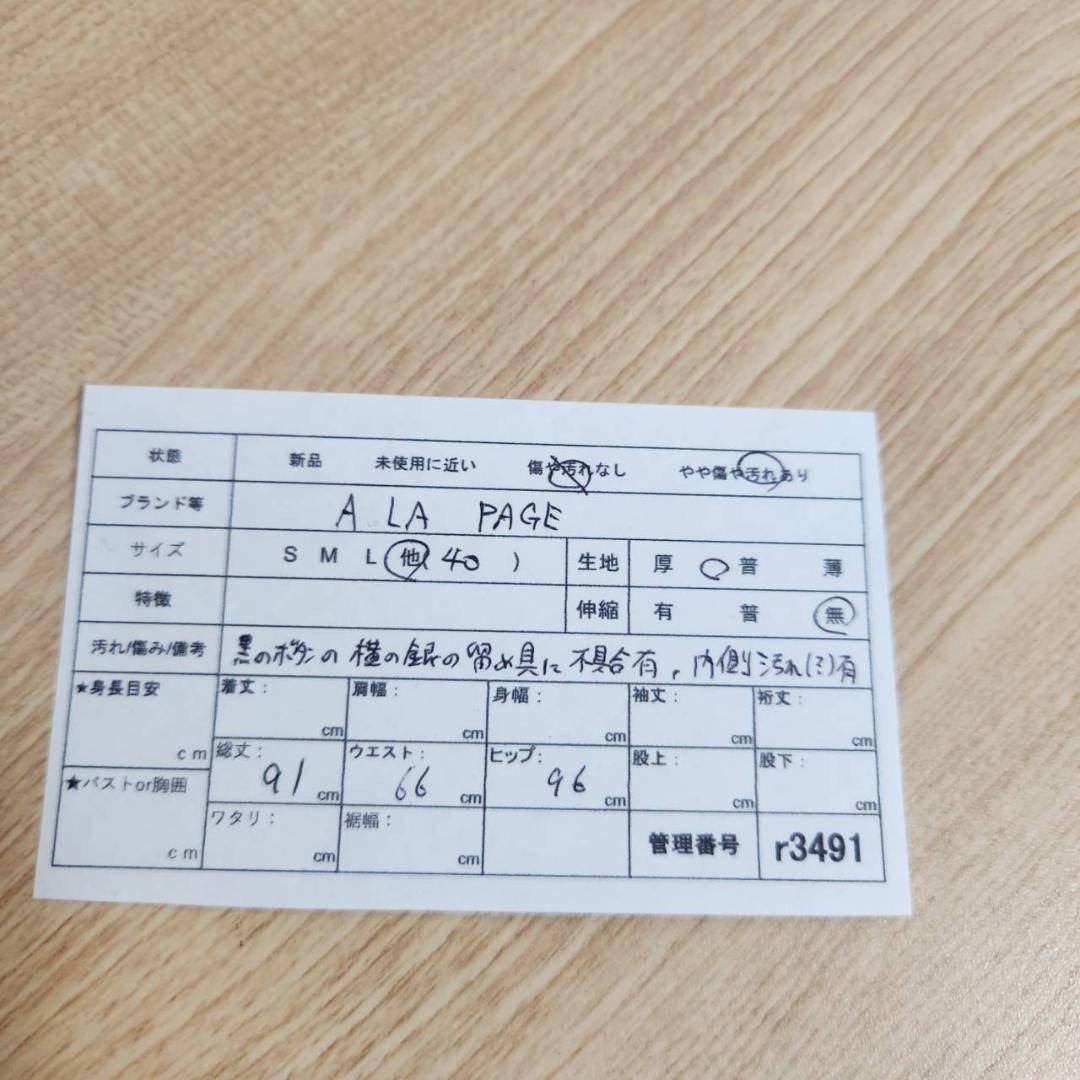 状態 新品 未使用に近い 傷や汚れなし やや傷や汚れあり
ブランド等 A LA PAGE
サイズ S M L(他 40 ) 生地 厚 普 薄
特徴 伸縮 有 普 無
汚れ/傷み/備考 黒のボタンの横の銀の留め具に不具合有, 内側汚れ(ミ)有
★身長目安 cm 着丈: cm 肩幅: cm 身幅: cm 袖丈: cm 裄丈: cm
総丈: 91 cm ウエスト: 66 cm ヒップ: 96 cm 股上: cm 股下: cm
★バストor胸囲 cm ワタリ: cm 裾幅: cm 管理番号 r3491